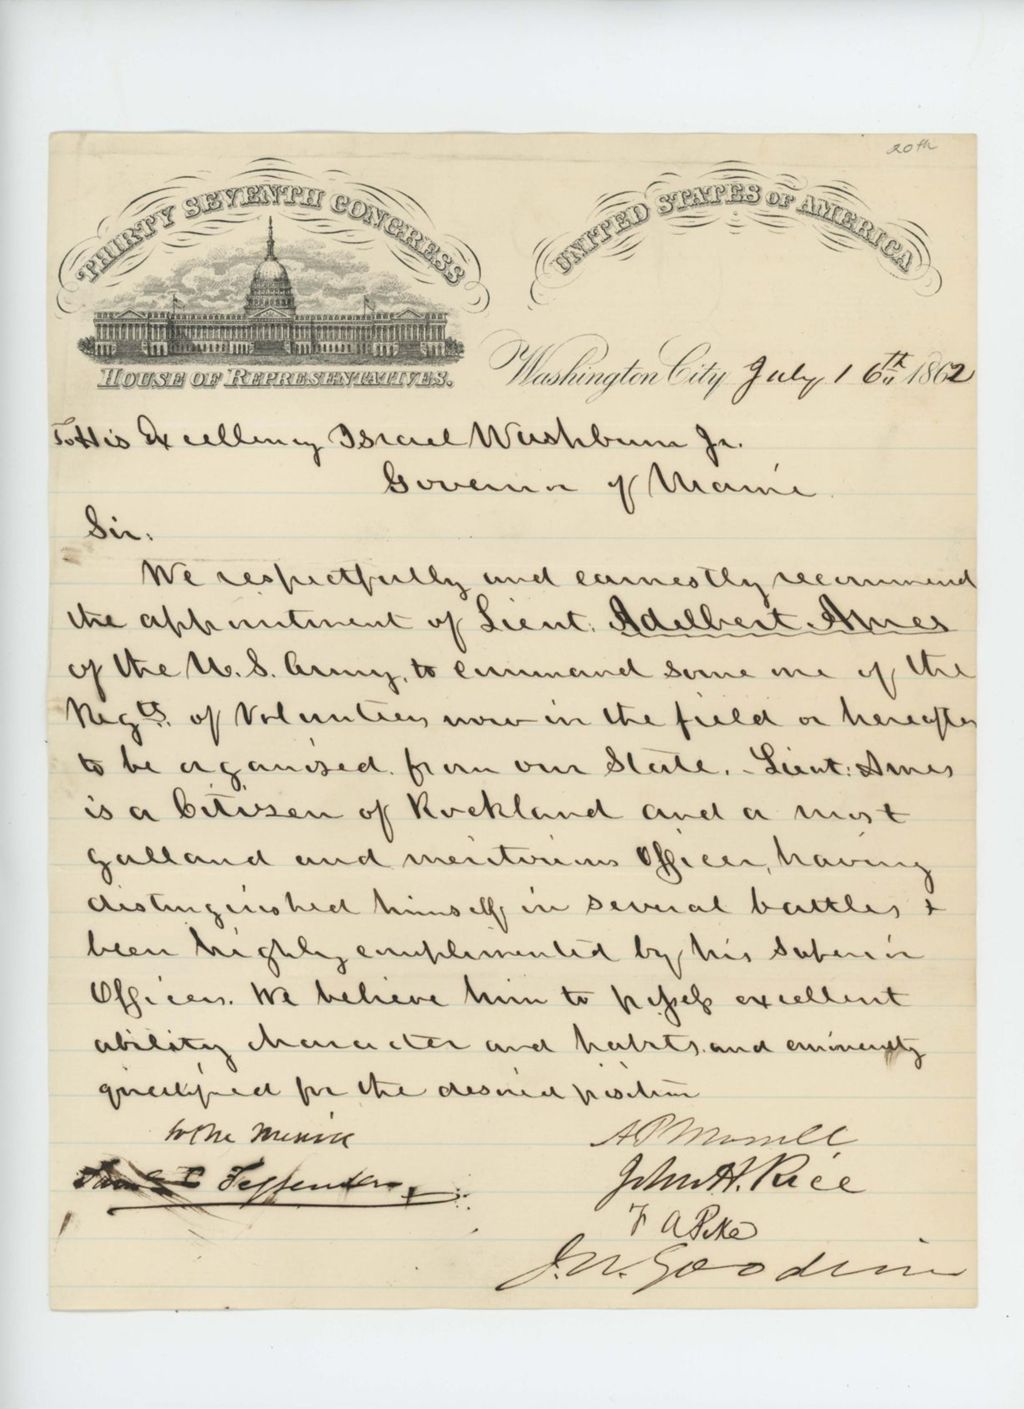 20th
THIRTY SEVENTH CONGRESS
UNITED STATES OF AMERICA
HOUSE OF REPRESENTATIVES.
Washington City July 16th 1862
To His Excellency Israel Washburn Jr.
Governor of Maine
Sir.
We respectfully and earnestly recommend
the appointment of Lieut. Adelbert Ames
of the U.S. Army, to command some one of the
Regts. of Volunteers now in the field or hereafter
to be organized from our State. - Lieut: Ames
is a Citizen of Rockland and a most
galland and meritorious Officer, having
distinguished himself in several battles &
been highly complimented by his Superior
Officers. We believe him to possess excellent
ability character and habits and eminently
qualified for the desired position
A P Morrill
John H. Rice
F A Pike
J. N. Goodwin
Saml C Fessenden